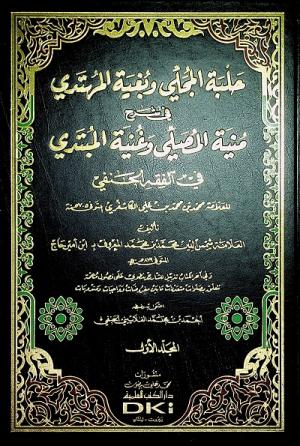 حلبة المجلي وبغية المهتدي
في شرح
منية المصلي وغنية المبتدي
في الفقه الحنفي
للعلامة محمد بن محمد بن علي الكاشغري
تأليف
العلامة شمس الدين محمد بن محمد المعروف بـ ابن أمير حاج
أحمد بن محمد الغلاييني الحنفي
المجلد الأول
منشورات
محمد علي بيضون
دار الكتب العلمية
DKi
بيروت - لبنان